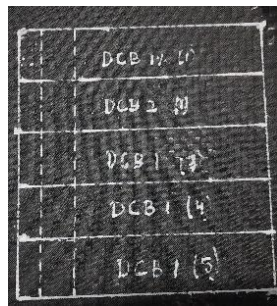 DCB
DCB 2
DCB 1 (3)
DCB 1 (4)
DCB 1 (5)